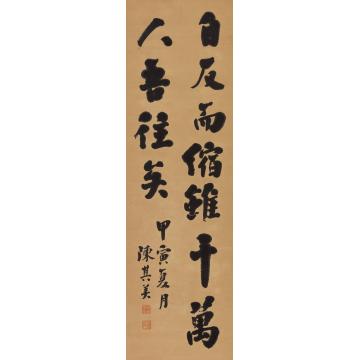 自反而縮雖千萬
人吾往矣
甲寅夏月
陳其美